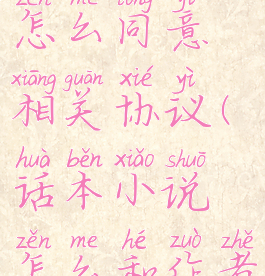 zěn me tóng yì
怎么同意
xiāng guān xié yì
相关协议(
huà běn xiǎo shuō
话本小说
zěn me hé zuò zhě
怎么和作者